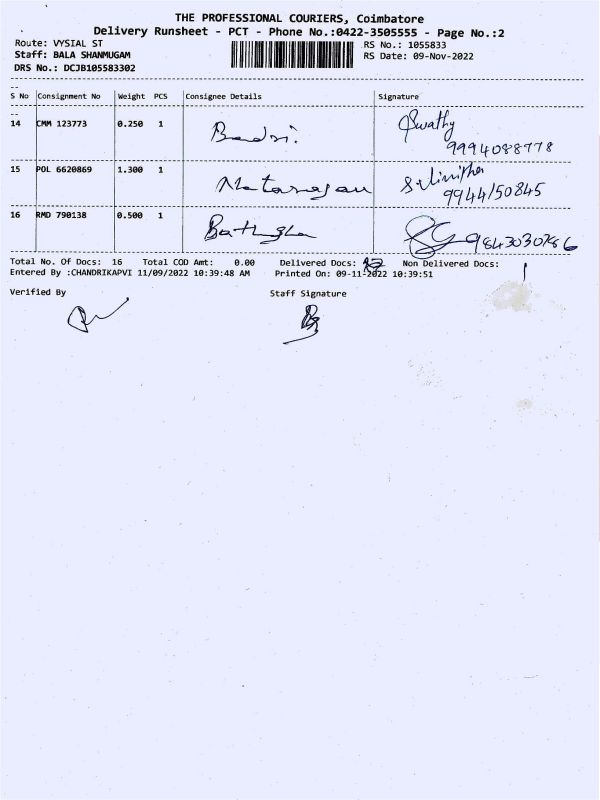 THE PROFESSIONAL COURIERS, Coimbatore
Delivery Runsheet - PCT - Phone No.:0422-3505555 - Page No.:2
Route: VYSIAL ST RS No.: 1055833
Staff: BALA SHANMUGAM RS Date: 09-Nov-2022
DRS No.: DCJB105583302
S No Consignment No Weight PCS Consignee Details Signature
14 CMM 123773 0.250 1 Badri. Swathy
9994088778
15 POL 6620869 1.300 1 Natarajan
9944150845
16 RMD 790138 0.500 1
9843030786
Total No. Of Docs: 16 Total COD Amt: 0.00 Delivered Docs: Non Delivered Docs:
Entered By :CHANDRIKAPVI 11/09/2022 10:39:48 AM Printed On: 09-11-2022 10:39:51
Verified By Staff Signature